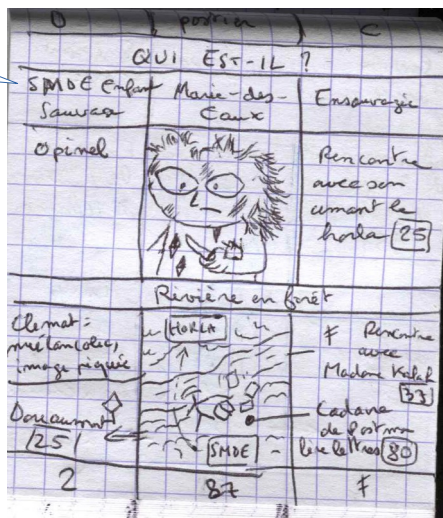 O postier C
QUI EST-IL ?
SMDE Enfant Sauvage
Marie-des-Eaux
Ensauvagée
Opinel
Rencontre
avec son
amant le
horla 25
Rivière en forêt
Climat =
mélancolie,
image piquée
HORLA
F Rencontre
avec
Madame Kalah
33
Douaumont
25
SMDE
Cadavre
de postier
lire lettres 80
2 87 F